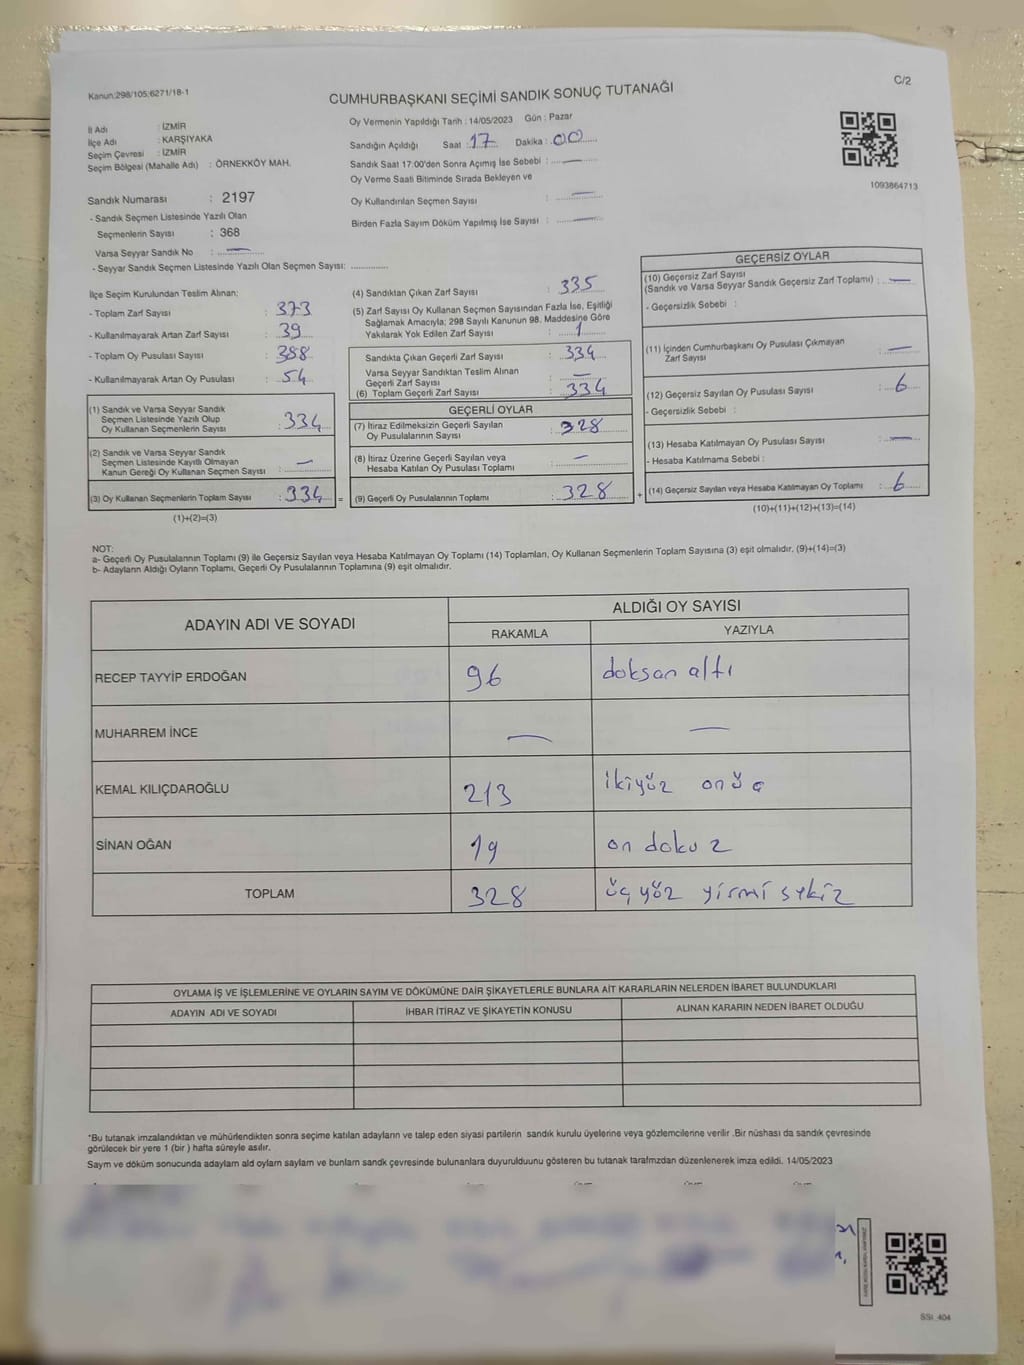 Kanun:298/105;6271/18-1
C/2
CUMHURBAŞKANI SEÇİMİ SANDIK SONUÇ TUTANAĞI
İl Adı : İZMİR
İlçe Adı : KARŞIYAKA
Seçim Çevresi : İZMİR
Seçim Bölgesi (Mahalle Adı) : ÖRNEKKÖY MAH.
Oy Vermenin Yapıldığı Tarih : 14/05/2023 Gün : Pazar
Sandığın Açıldığı Saat : 17 Dakika : 00
Sandık Saat 17:00'den Sonra Açımış İse Sebebi : —
Oy Verme Saati Bitiminde Sırada Bekleyen ve
Oy Kullandırılan Seçmen Sayısı : —
Birden Fazla Sayım Döküm Yapılmış İse Sayısı : —
1093864713
Sandık Numarası : 2197
- Sandık Seçmen Listesinde Yazılı Olan
Seçmenlerin Sayısı : 368
Varsa Seyyar Sandık No : —
- Seyyar Sandık Seçmen Listesinde Yazılı Olan Seçmen Sayısı: ..............
İlçe Seçim Kurulundan Teslim Alınan:
- Toplam Zarf Sayısı : 373
- Kullanılmayarak Artan Zarf Sayısı : 39
- Toplam Oy Pusulası Sayısı : 388
- Kullanılmayarak Artan Oy Pusulası : 54
(1) Sandık ve Varsa Seyyar Sandık
Seçmen Listesinde Yazılı Olup
Oy Kullanan Seçmenlerin Sayısı : 334
(2) Sandık ve Varsa Seyyar Sandık
Seçmen Listesinde Kayıtlı Olmayan
Kanun Gereği Oy Kullanan Seçmen Sayısı : —
(3) Oy Kullanan Seçmenlerin Toplam Sayısı : 334 =
(1)+(2)=(3)
(4) Sandıktan Çıkan Zarf Sayısı : 335
(5) Zarf Sayısı Oy Kullanan Seçmen Sayısından Fazla İse, Eşitliği
Sağlamak Amacıyla; 298 Sayılı Kanunun 98. Maddesine Göre
Yakılarak Yok Edilen Zarf Sayısı : 1
Sandıkta Çıkan Geçerli Zarf Sayısı : 334
Varsa Seyyar Sandıktan Teslim Alınan
Geçerli Zarf Sayısı : —
(6) Toplam Geçerli Zarf Sayısı : 334
GEÇERLİ OYLAR
(7) İtiraz Edilmeksizin Geçerli Sayılan
Oy Pusulalarının Sayısı : 328
(8) İtiraz Üzerine Geçerli Sayılan veya
Hesaba Katılan Oy Pusulası Toplamı : —
(9) Geçerli Oy Pusulalarının Toplamı : 328 +
GEÇERSİZ OYLAR
(10) Geçersiz Zarf Sayısı
(Sandık ve Varsa Seyyar Sandık Geçersiz Zarf Toplamı) : —
- Geçersizlik Sebebi :
(11) İçinden Cumhurbaşkanı Oy Pusulası Çıkmayan
Zarf Sayısı : —
(12) Geçersiz Sayılan Oy Pusulası Sayısı : 6
- Geçersizlik Sebebi :
(13) Hesaba Katılmayan Oy Pusulası Sayısı : —
- Hesaba Katılmama Sebebi :
(14) Geçersiz Sayılan veya Hesaba Katılmayan Oy Toplamı : 6
(10)+(11)+(12)+(13)=(14)
NOT:
a- Geçerli Oy Pusulalarının Toplamı (9) ile Geçersiz Sayılan veya Hesaba Katılmayan Oy Toplamı (14) Toplamları, Oy Kullanan Seçmenlerin Toplam Sayısına (3) eşit olmalıdır, (9)+(14)=(3)
b- Adayların Aldığı Oyların Toplamı, Geçerli Oy Pusulalarının Toplamına (9) eşit olmalıdır.
ADAYIN ADI VE SOYADI
ALDIĞI OY SAYISI
RAKAMLA YAZIYLA
RECEP TAYYİP ERDOĞAN 96 doksan altı
MUHARREM İNCE — —
KEMAL KILIÇDAROĞLU 213 ikiyüz onüç
SİNAN OĞAN 19 on dokuz
TOPLAM 328 üç yüz yirmi sekiz
OYLAMA İŞ VE İŞLEMLERİNE VE OYLARIN SAYIM VE DÖKÜMÜNE DAİR ŞİKAYETLERLE BUNLARA AİT KARARLARIN NELERDEN İBARET BULUNDUKLARI
ADAYIN ADI VE SOYADI İHBAR İTİRAZ VE ŞİKAYETİN KONUSU ALINAN KARARIN NEDEN İBARET OLDUĞU
*Bu tutanak imzalandıktan ve mühürlendikten sonra seçime katılan adayların ve talep eden siyasi partilerin sandık kurulu üyelerine veya gözlemcilerine verilir .Bir nüshası da sandık çevresinde
görülecek bir yere 1 (bir ) hafta süreyle asılır.
Sayım ve döküm sonucunda adaylam ald oylam saylam ve bunlam sandk çevresinde bulunanlara duyurulduunu gösteren bu tutanak tarafmzdan düzenlenerek imza edildi. 14/05/2023
SSİ_404